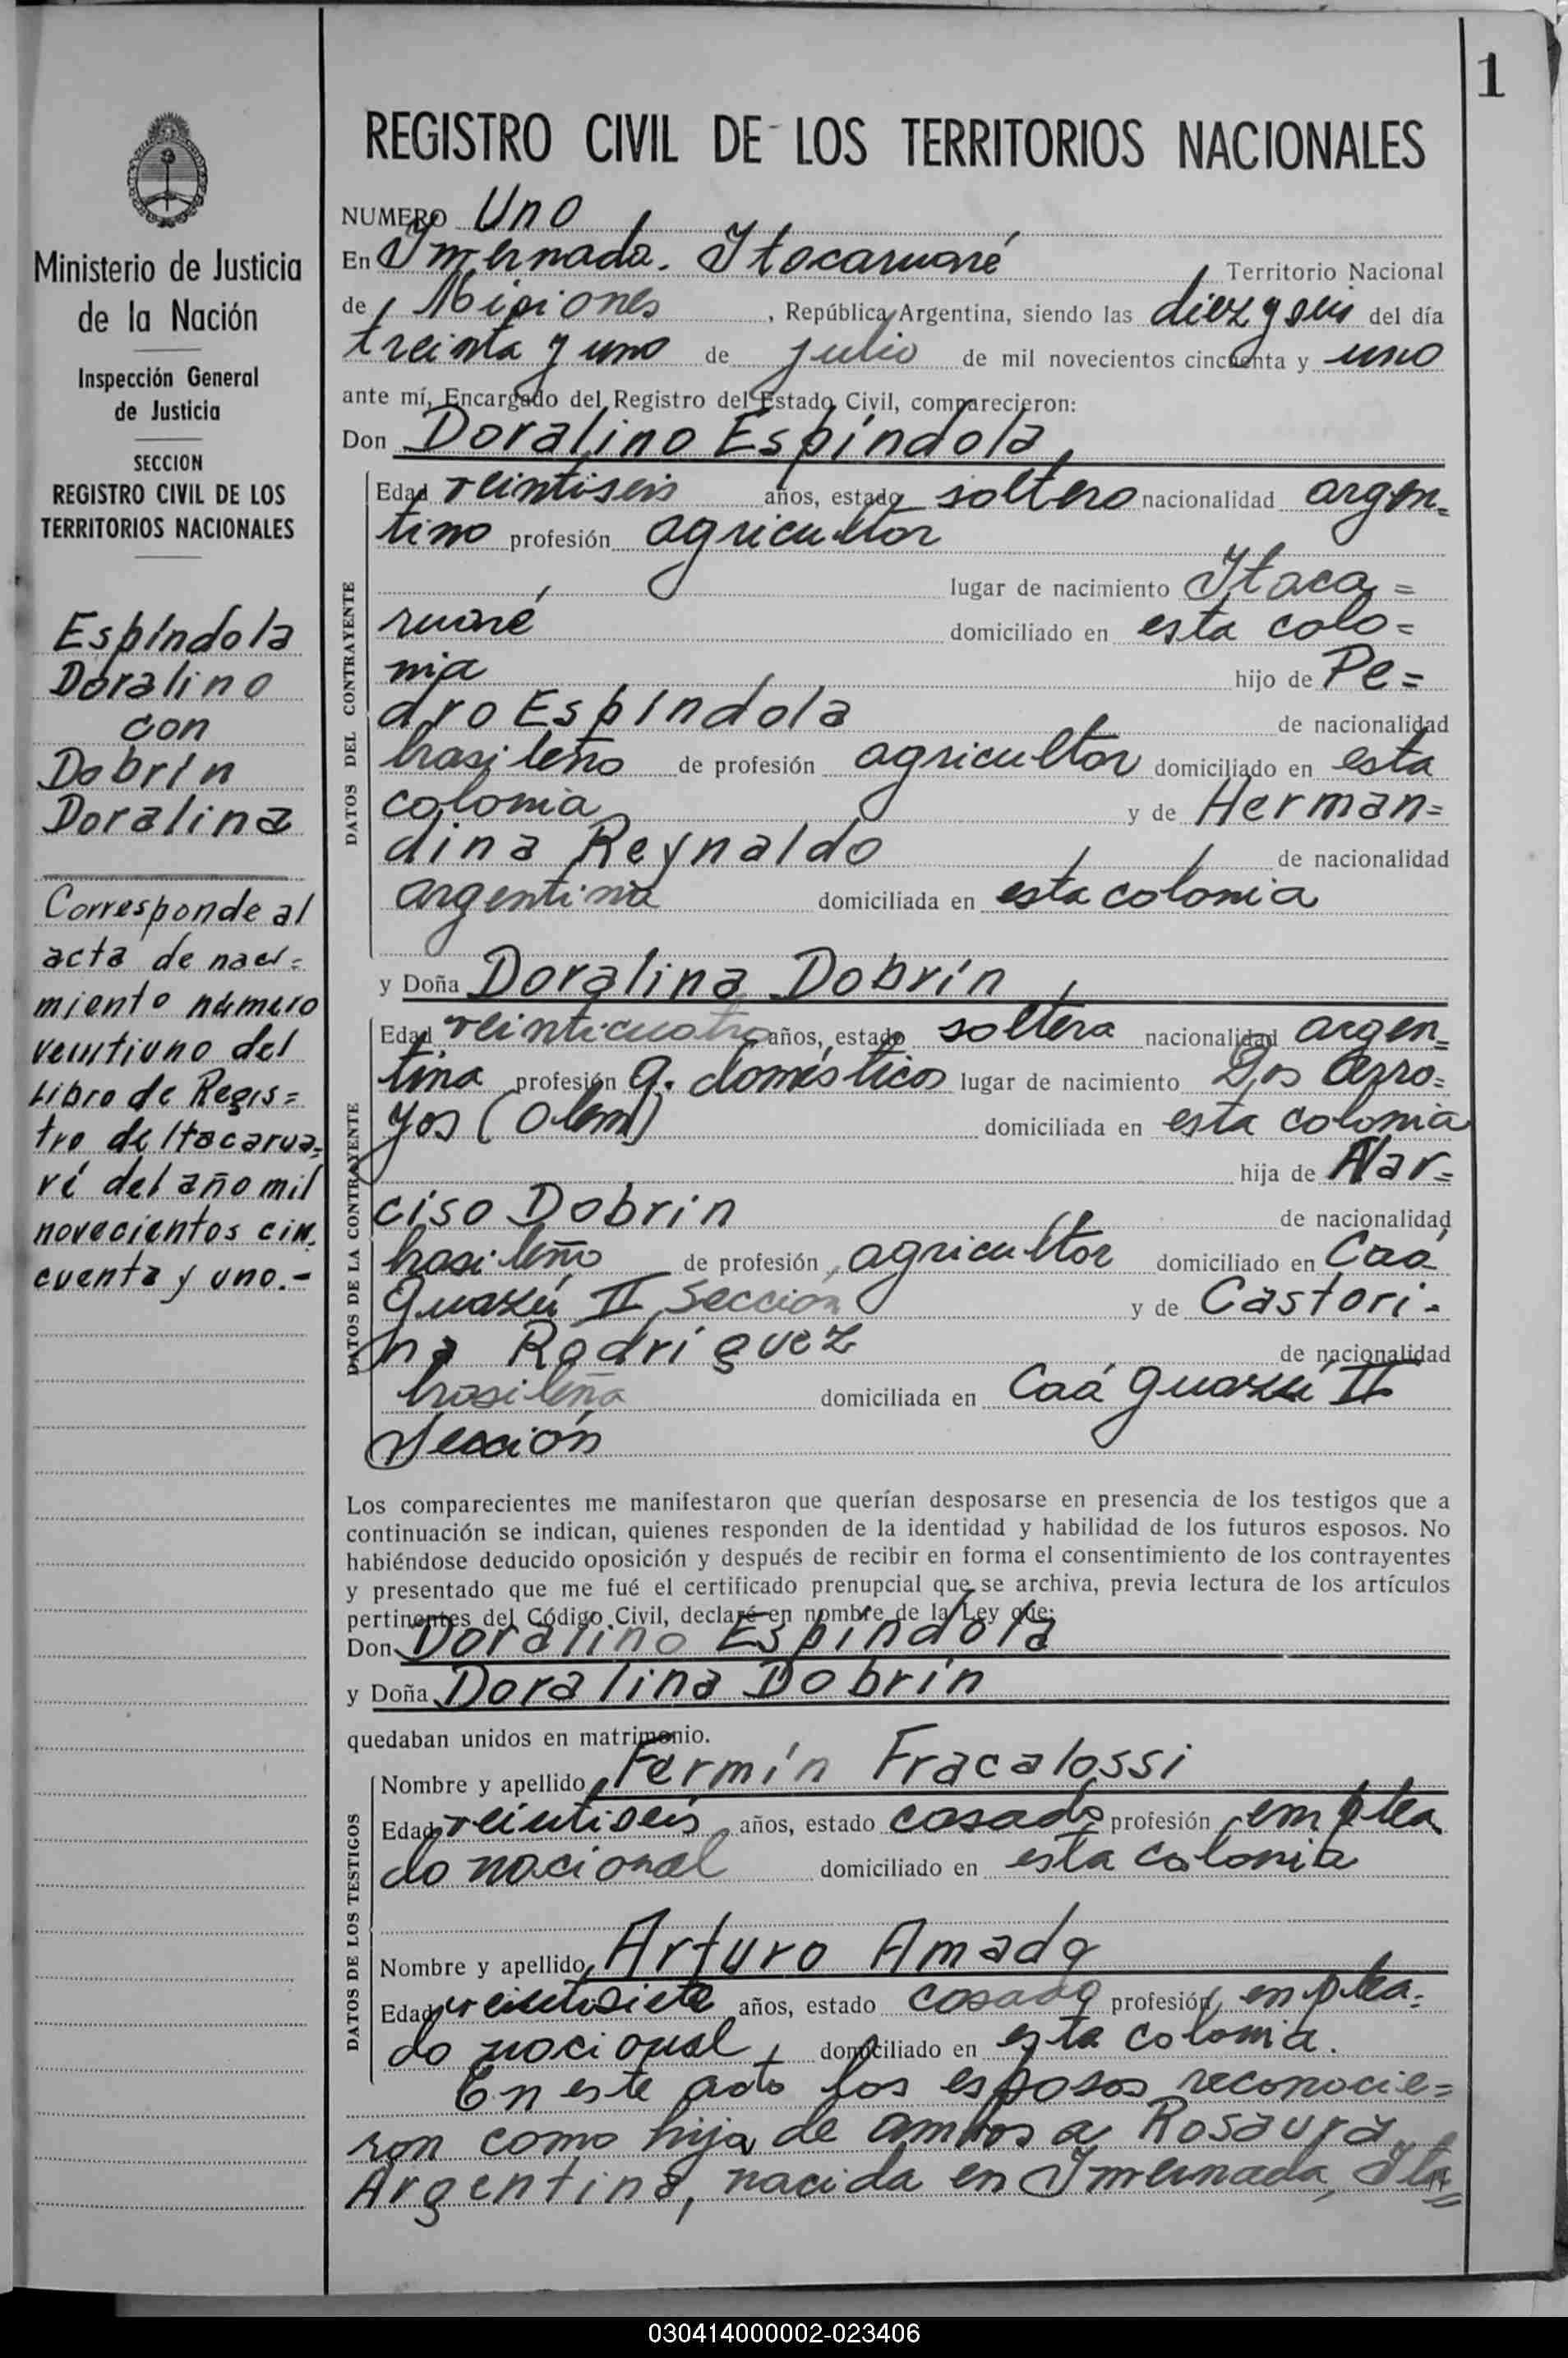 1
Ministerio de Justicia
de la Nación
Inspección General
de Justicia
SECCION
REGISTRO CIVIL DE LOS
TERRITORIOS NACIONALES
Espíndola
Doralino
con
Dobrin
Doralina
Corresponde al
acta de naci=
miento número
veintiuno del
Libro de Regis=
tro de Itacarua=
ré del año mil
novecientos cin.
cuenta y uno.-
REGISTRO CIVIL DE LOS TERRITORIOS NACIONALES
NUMERO Uno
En Invernada. Itacaruaré Territorio Nacional
de Misiones, República Argentina, siendo las diez y seis del día
treinta y uno de julio de mil novecientos cincuenta y uno
ante mí, Encargado del Registro del Estado Civil, comparecieron:
Don Doralino Espíndola
DATOS DEL CONTRAYENTE
Edad veintiseis años, estado soltero nacionalidad argen=
tino profesión agricultor
lugar de nacimiento Itaca=
ruaré domiciliado en esta colo=
nia hijo de Pe=
dro Espíndola de nacionalidad
brasileño de profesión agricultor domiciliado en esta
colonia y de Herman=
dina Reynaldo de nacionalidad
argentina domiciliada en esta colonia
y Doña Doralina Dobrín
DATOS DE LA CONTRAYENTE
Edad veinticuatro años, estado soltera nacionalidad argen=
tina profesión q. domésticos lugar de nacimiento Dos Arro=
yos (Olem) domiciliada en esta colonia
hija de Nar=
ciso Dobrin de nacionalidad
brasileño de profesión agricultor domiciliado en Caá
Guazú II Sección y de Castori-
na Rodríguez de nacionalidad
brasileña domiciliada en Caá Guazú II
Sección
Los comparecientes me manifestaron que querían desposarse en presencia de los testigos que a
continuación se indican, quienes responden de la identidad y habilidad de los futuros esposos. No
habiéndose deducido oposición y después de recibir en forma el consentimiento de los contrayentes
y presentado que me fué el certificado prenupcial que se archiva, previa lectura de los artículos
pertinentes del Código Civil, declaré en nombre de la Ley que:
Don Doralino Espíndola
y Doña Doralina Dobrín
quedaban unidos en matrimonio.
DATOS DE LOS TESTIGOS
Nombre y apellido Fermín Fracalossi
Edad veintiseis años, estado casado profesión emplea
do nacional domiciliado en esta colonia
Nombre y apellido Arturo Amado
Edad veintisiete años, estado casado profesión emplea=
do nacional domiciliado en esta colonia.
En este acto los esposos reconocie=
ron como hija de ambos a Rosaura
Argentina, nacida en Invernada, Ita=
030414000002-023406